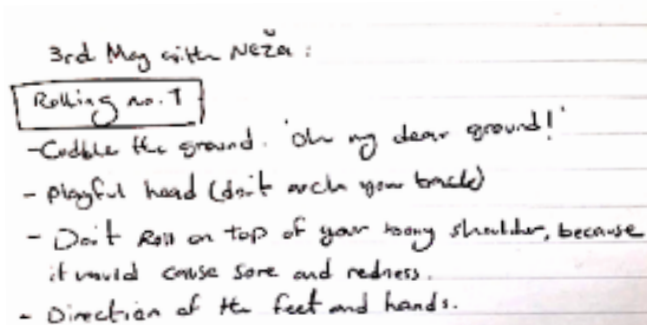 3rd May with Neža:
Rolling no. 1
- Cuddle the ground. 'Oh my dear ground!'
- Playful head (don't arch your back)
- Don't Roll on top of your bony shoulder, because
it would cause sore and redness.
- Direction of the feet and hands.